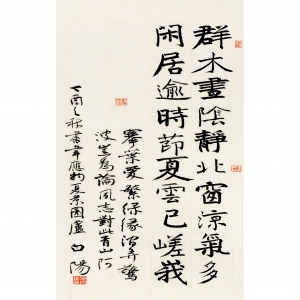 群木晝陰靜北窗涼氣多
閑居逾時節夏雲已嵯峩
搴葉愛繁綠緣澗弄驚
波豈為論夙志對此青山阿
丁酉之秋書韋應物夏景園廬 白陽